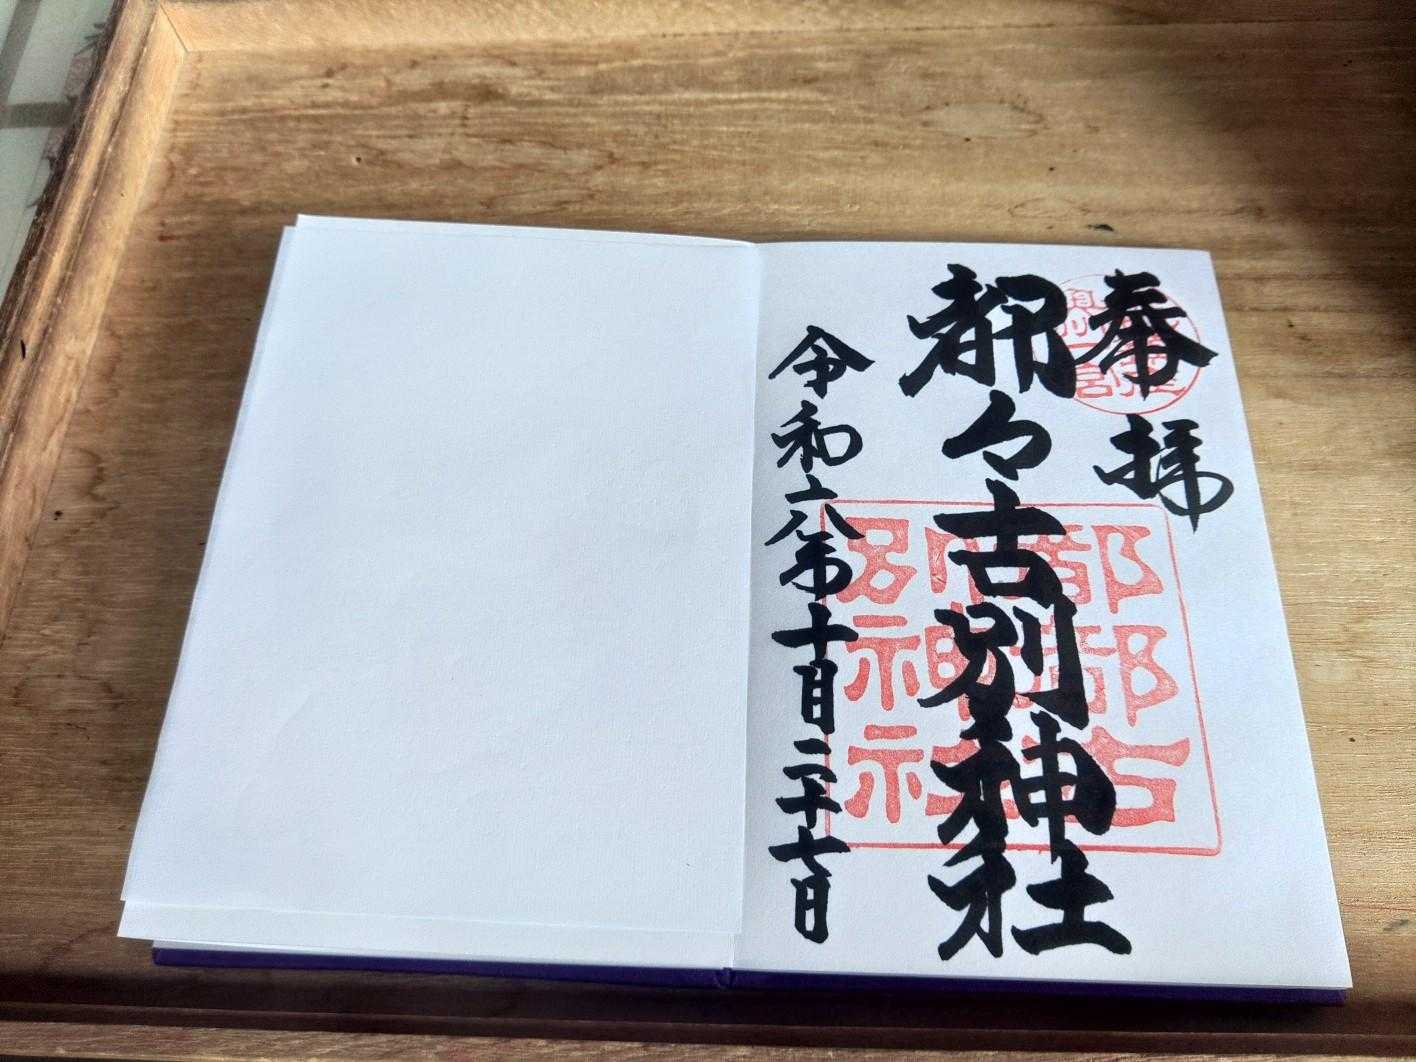 奉拝
都々古別神社
令和六年十月二十七日
都都古
別神社